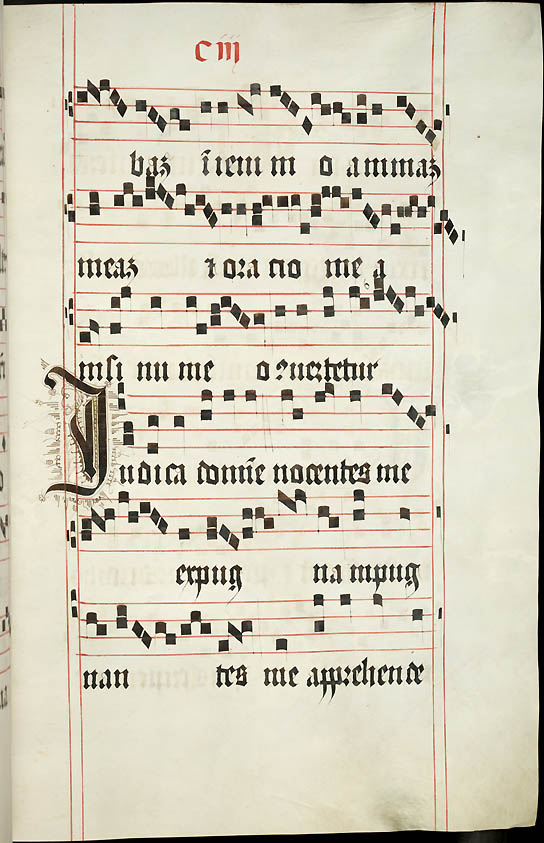 C iij
baz ī ieiu ni o animaz
meaz ⁊ ora tio me a
in si nu me o ꝯuertetur
Iudica domīe nocentes me
expug na impug
nan tes me apprehende